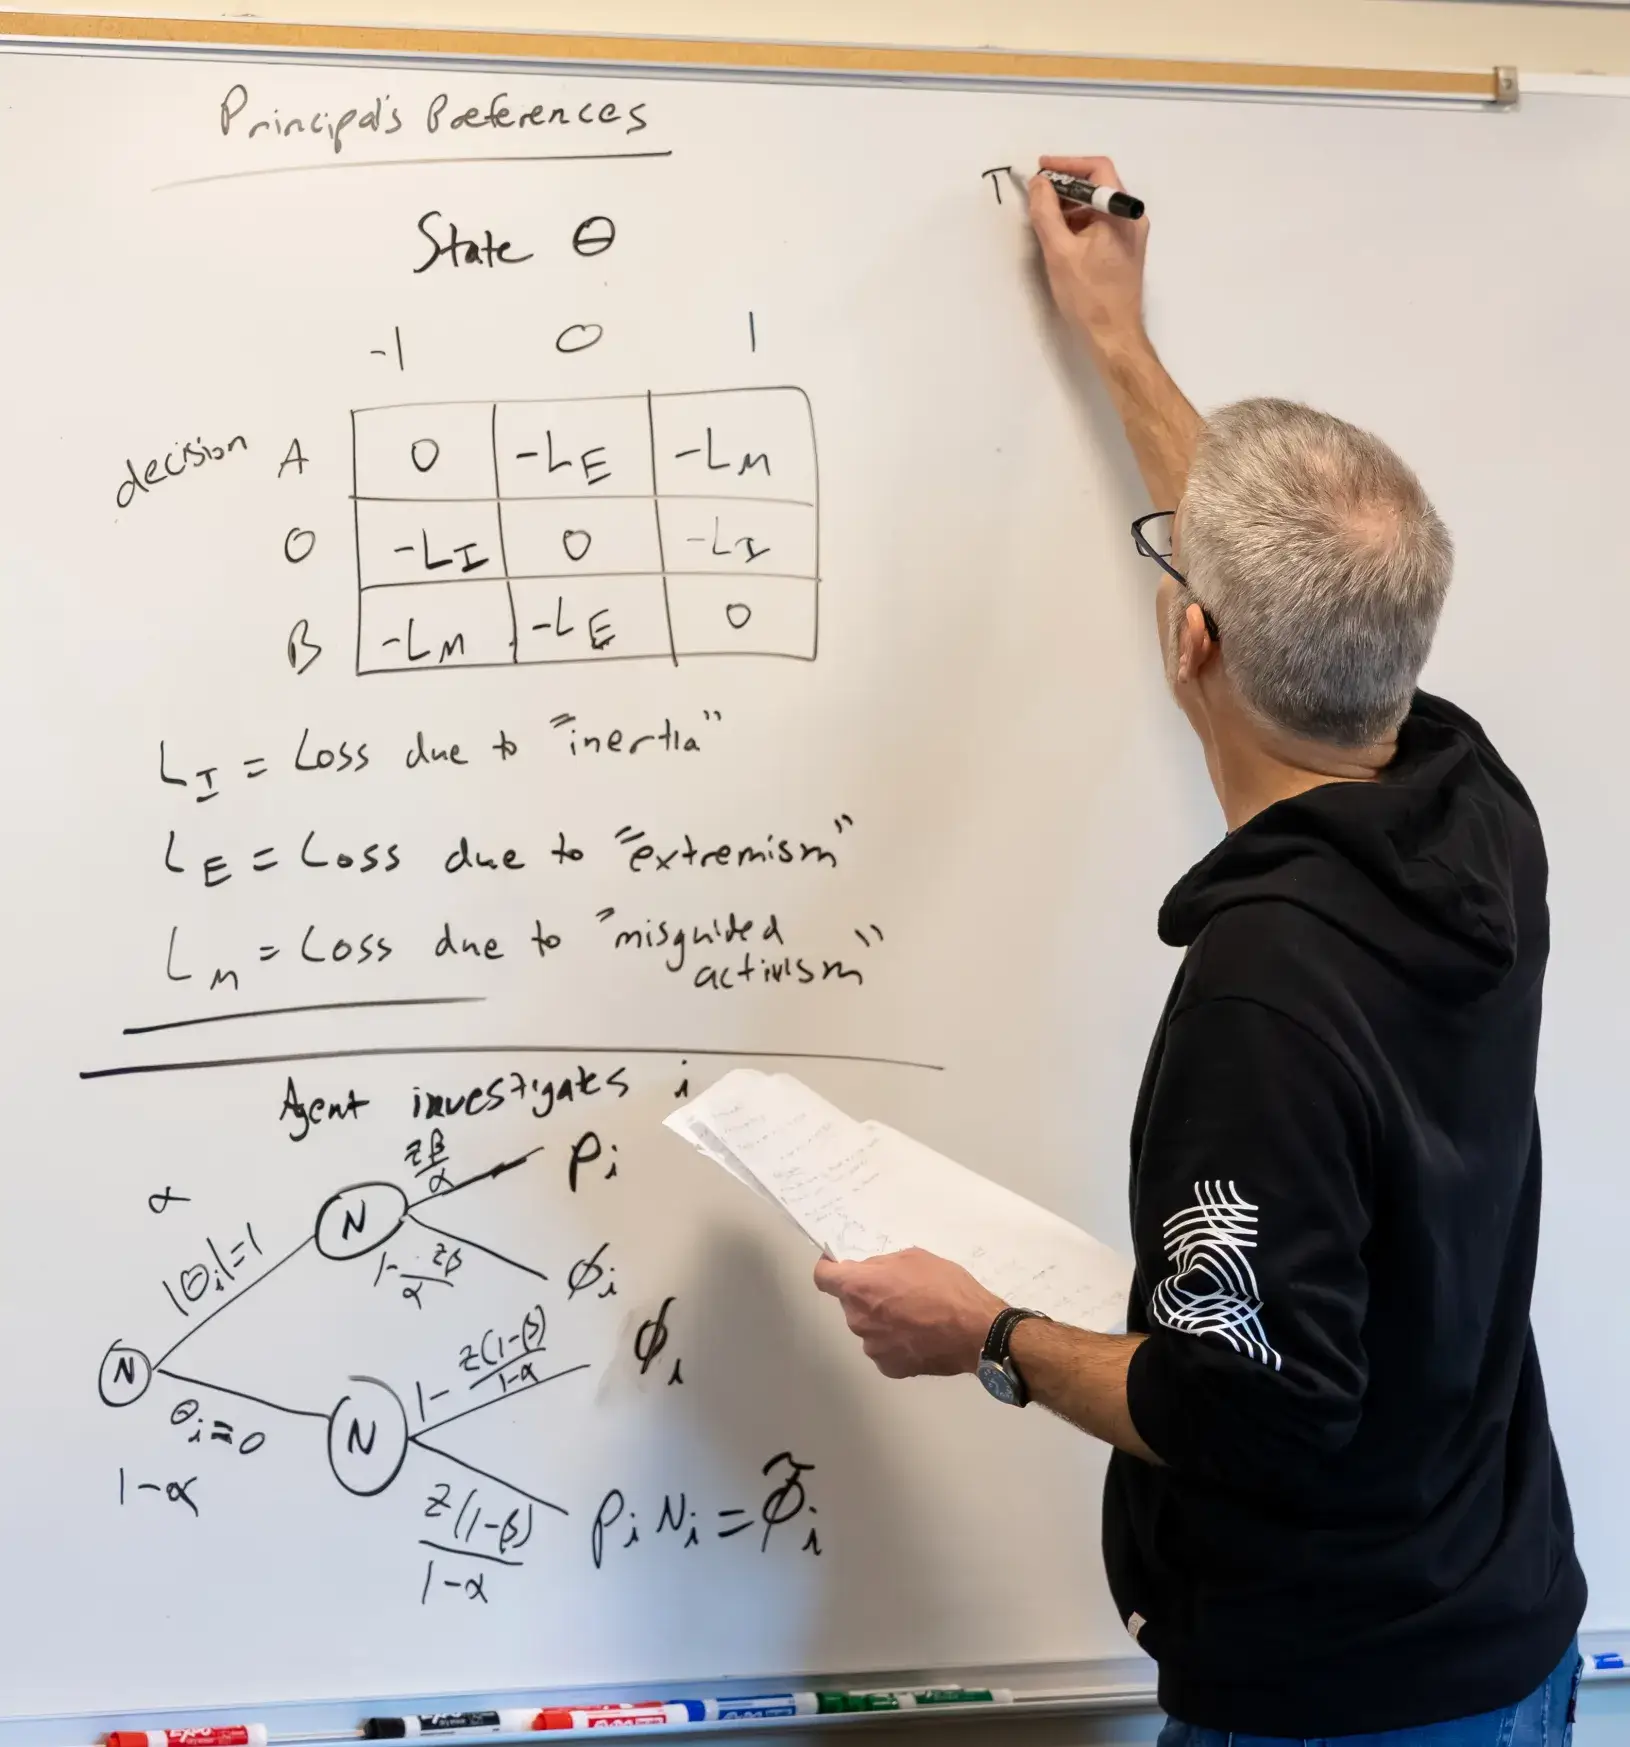 Principal's Preferences
T
State Θ
-1 0 1
decision A 0 -L_E -L_M
O -L_I 0 -L_I
B -L_M -L_E 0
L_I = Loss due to "inertia"
L_E = Loss due to "extremism"
L_M = Loss due to "misguided
activism"
Agent investigates i
zβ/α ρi
α
N
|θi|=1
1- zβ/α ∅i
1- z(1-β)/1-α ∅i
N
θi=0 N
1-α
z(1-β)/1-α ρi Ni = ∅̃i
EXPO